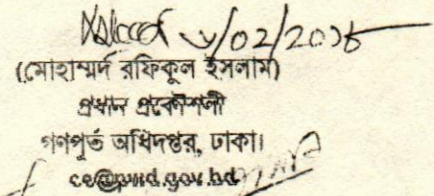 /02/20
(মোহাম্মদ রফিকুল ইসলাম)
প্রধান প্রকৌশলী
গণপূর্ত অধিদপ্তর, ঢাকা।
ce@pwd.gov.bd